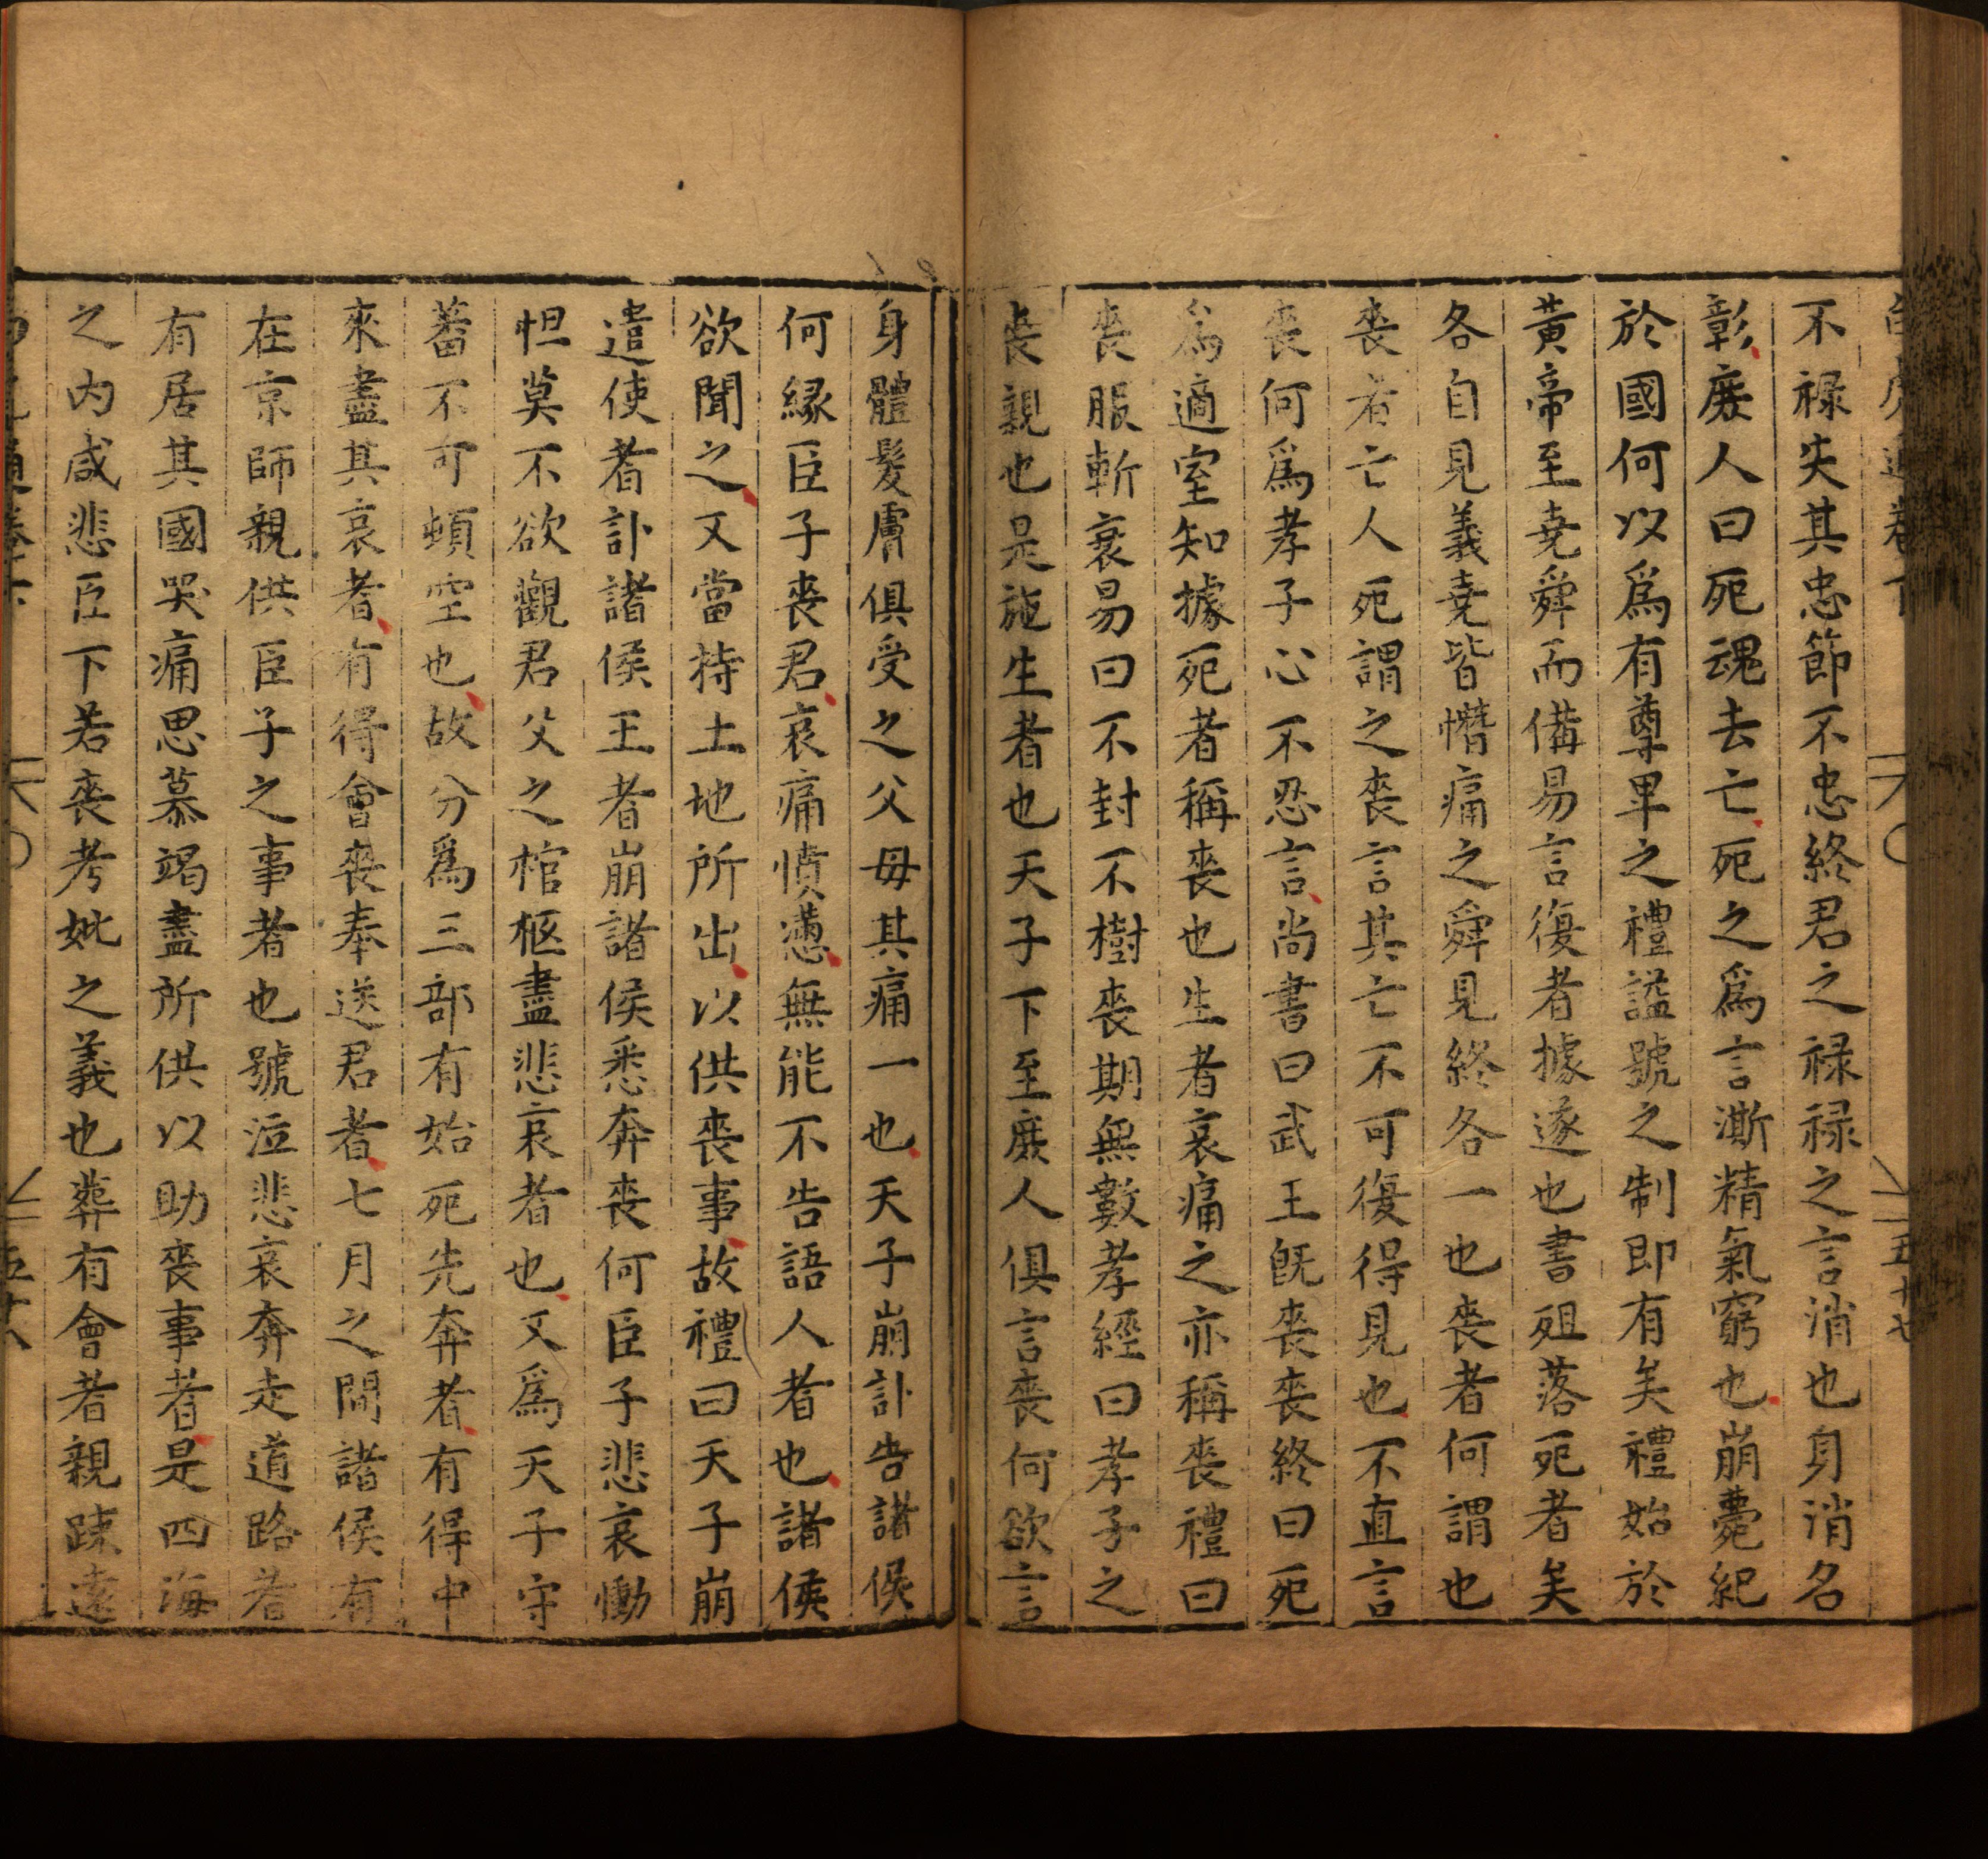 不祿失其忠節不忠終君之祿祿之言消也身消名
彰庶人曰死魂去亡死之爲言澌精氣窮也崩薨紀
於國何以爲有尊卑之禮謚號之制即有矣禮始於
黃帝至堯舜而備易言復者據遂也書殂落死者矣
各自見義堯皆憯痛之舜見終各一也喪者何謂也
喪者亡人死謂之喪言其亡不可復得見也不直言
喪何爲孝子心不忍言尚書曰武王旣喪喪終曰死
爲適室知據死者稱喪也生者哀痛之亦稱喪禮曰
喪服斬衰易曰不封不樹喪期無數孝經曰孝子之
喪親也是施生者也天子下至庶人俱言喪何欲言
身體髮膚俱受之父母其痛一也天子崩訃告諸侯
何緣臣子喪君哀痛憤懣無能不告語人者也諸侯
欲聞之又當持土地所出以供喪事故禮曰天子崩
遣使者訃諸侯王者崩諸侯悉奔喪何臣子悲哀慟
怛莫不欲觀君父之棺柩盡悲哀者也又爲天子守
蕃不可頓空也故分爲三部有始死先奔者有得中
來盡其哀者有得會喪奉送君者七月之間諸侯有
在京師親供臣子之事者也號泣悲哀奔走道路者
有居其國哭痛思慕竭盡所供以助喪事者是四海
之內咸悲臣下若喪考妣之義也葬有會者親踈遠